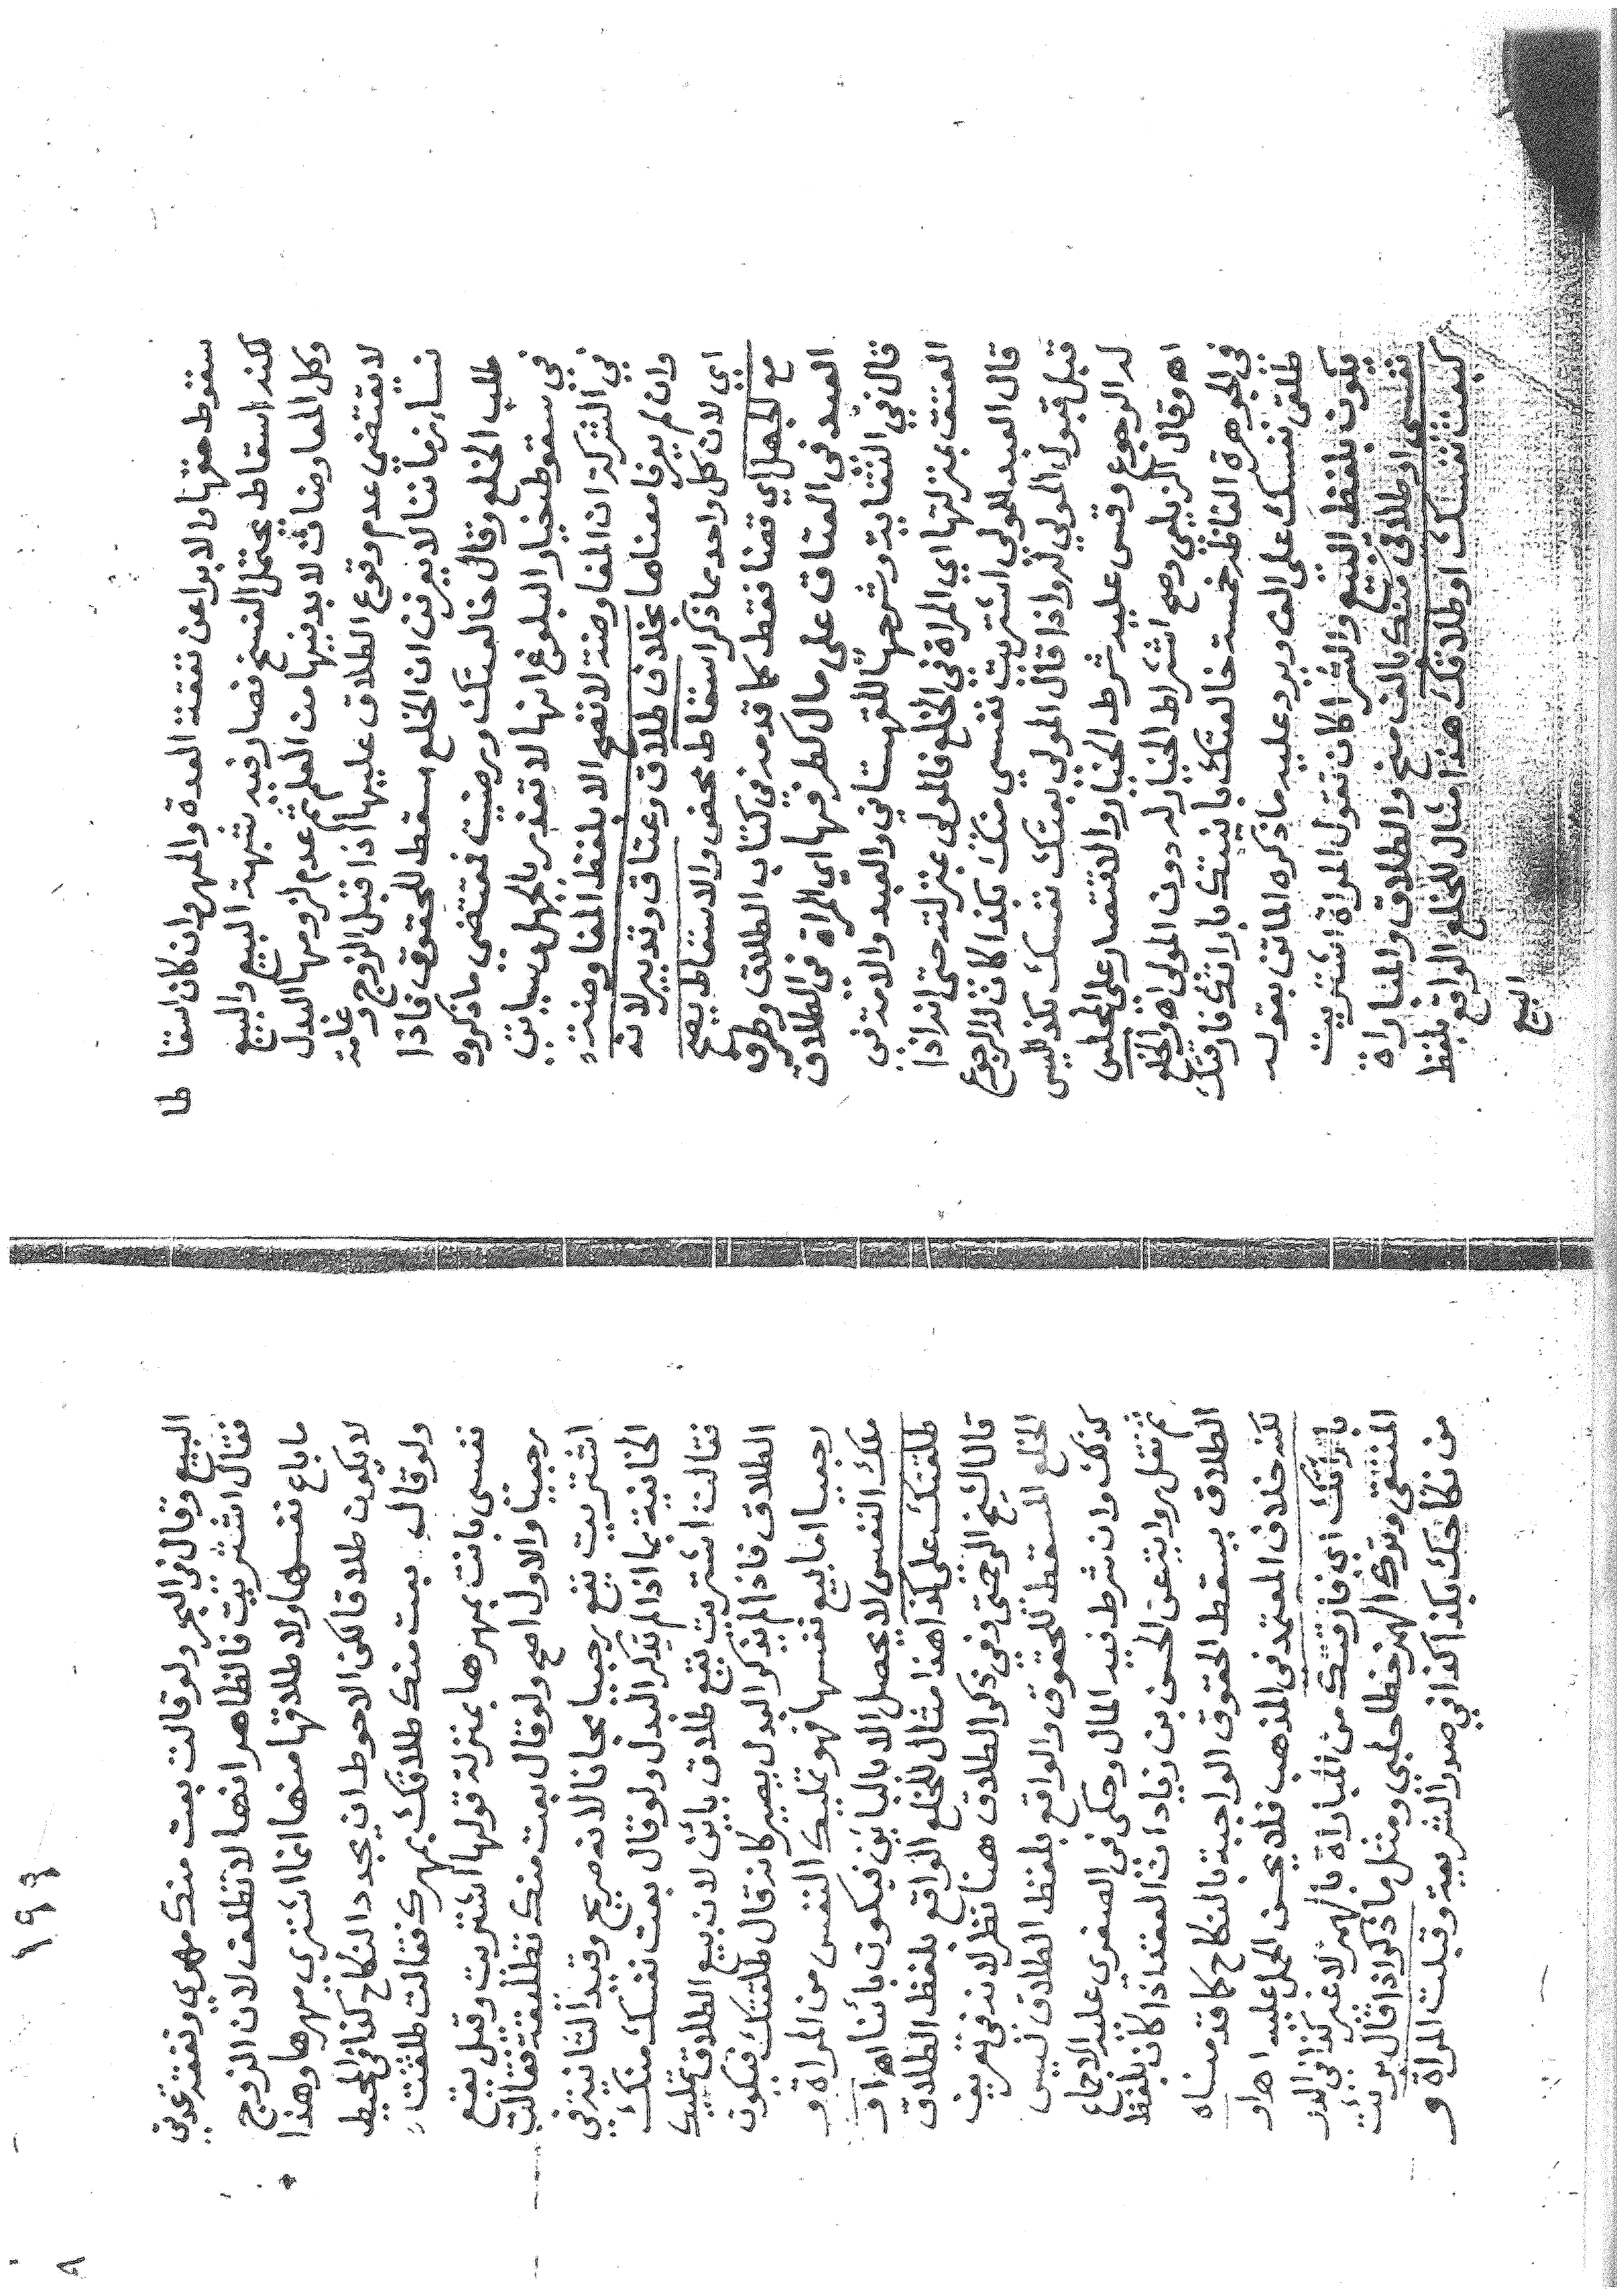 سقوط حقها والابراعن نفقة العدة والمهر وان كان اسقا طا
لكنه اسقاط يحتمل الفسخ فصار فيه شبهة البيع والبيع
وكل المعاوضات لابد فيها من العلم ثم عدم لزومها البدل
لا يقتضي عدم وقوع الطلاق عليها اذا قبل الزوج و غامة
نساء زماننا لا يعرفن ان الخلع مسقط للحقوق فاذا
طلب الخلع وقال خالعتك ورضيت فمقتضى ماذكروه
في سقوط خيار البلوغ انها لا تعذر بالجهل وسياتي
في الشركة ان المفاوضة لا تصح الا بلفظ المفاوضة
وان لم يعرفا معناها بخلاف طلاق وعتاق وتدبير لانه
اي لان كل واحد مما ذكر اسقاط محض والاسقاط يصح
مع الجهل اي قضا فقط كما قدمه في كتاب الطلاق وطرف
العبد في العتاق على مال كطرفها اي المراة في الطلاق
قال في النقاية وشرحها للقهستاني والعبد والامة في
العتق بمنزلتها اي المراة في الخلع فالمولى بمنزلته حتى انه اذا
قال العبد للمولى اشتريت نفسي منك بكذا كان له الرجوع
قبل قبول المولى ولو اذا قال المولى بعتك نفسك بكذا ليس
له الرجوع وقس عليه شرط الخيار والاقتصار على المجلس
اهـ وقال الزيلعي وصح اشتراط الخيار له دون المولى اهـ والخلع
في الجوهرة الفاظه خمسة خالعتك باينتك باراتك فارقتك
طلقي نفسك على الف ويرد عليه ماذكره الماتن بقوله
يكون بلفظ البيع والشرا كان تقول المراة اشتريت
نفسي او طلاقي منك بالف منح والطلاق والمباراة
كبعت نفسك او طلاقك هذا مثال للخلع الواقع بلفظ
البيع
١٩٣
البيع وقال في البحر ولو قالت بعت منك مهري ونفقة عدتي
فقال اشتريت فالظاهر انها لا تطلق لان الزوج
ما باع نفسها ولا طلاقها منها انما اشترى مهرها وهذا
لا يكون طلاقا لكن الاحوط ان يجدد النكاح كذا في المحيط
ولو قال بعت منك طلاقك بمهرك فقالت طلقت
نفسي بانت بمهرها بمنزلة قولها اشتريت وقيل يقع
رجعيا والاول اصح ولو قال بعت منك تطليقة فقالت
اشتريت يقع رجعيا مجانا لانه صريح وقيد الثانية في
الخانية بما اذا لم يذكر البدل ولو قال بعت نفسك منك
فقالت اشتريت يقع طلاق باين لان بيع الطلاق تمليك
الطلاق فاذا لم يذكر البدل يصير كانه قال طلقتك فيكون
رجعيا اما بيع نفسها فهو تمليك النفس من المراة و
ملك النفس لا يحصل الا بالباين فيكون بائنا اهـ او
طلقتك على كذا هذا مثال للخلع الواقع بلفظ الطلاق
قال الشيخ الرحمتي وفي ذكر الطلاق هنا نظر لانه في تعريف
الخلع المسقط للحقوق والواقع بلفظ الطلاق ليس
كذلك وان شرط فيه المال وحكى في الصغرى عليه الاجماع
ثم نقل رواية عن الحسن بن زياد ان العقد اذا كان بلفظ
الطلاق يسقط الحقوق الواجبة بالنكاح كما قدمناه
لكنه خلاف المعتمد في المذهب فلا يحسن الحمل عليه اهـ او
باراتك اي فارقتك من المباراة بالهمز لا غير كذا في الدر
المنتقى وترك الهمز خطا حلبي ومثل ما ذكر اذا قال برئت
من نكاحك بكذا كذا في صدر الشريعة وقبلت المراة و
٨